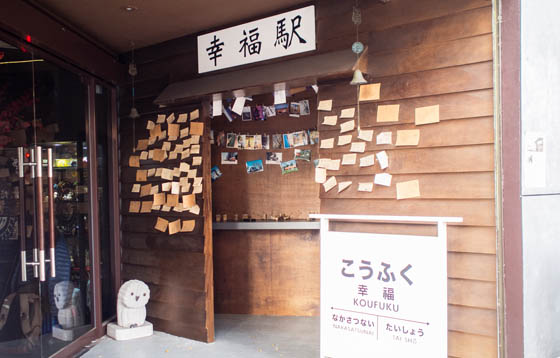 幸福駅
こうふく
幸福
KOUFUKU
なかさつない たいしょう
NAKASATSUNAI TAI SHO